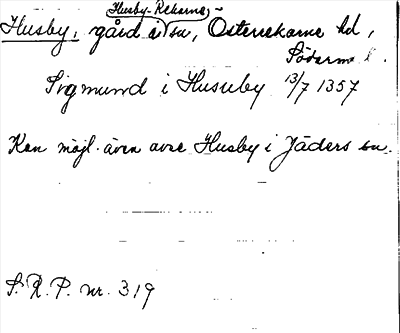 Husby-Rekarne,-
Husby, gård i sn, Österrekarne hd,
Söderml.
Sigmund i Husuby 13/7 1357
Kan möjl. även avse Husby i Jäders sn.
S.R.P. nr. 319